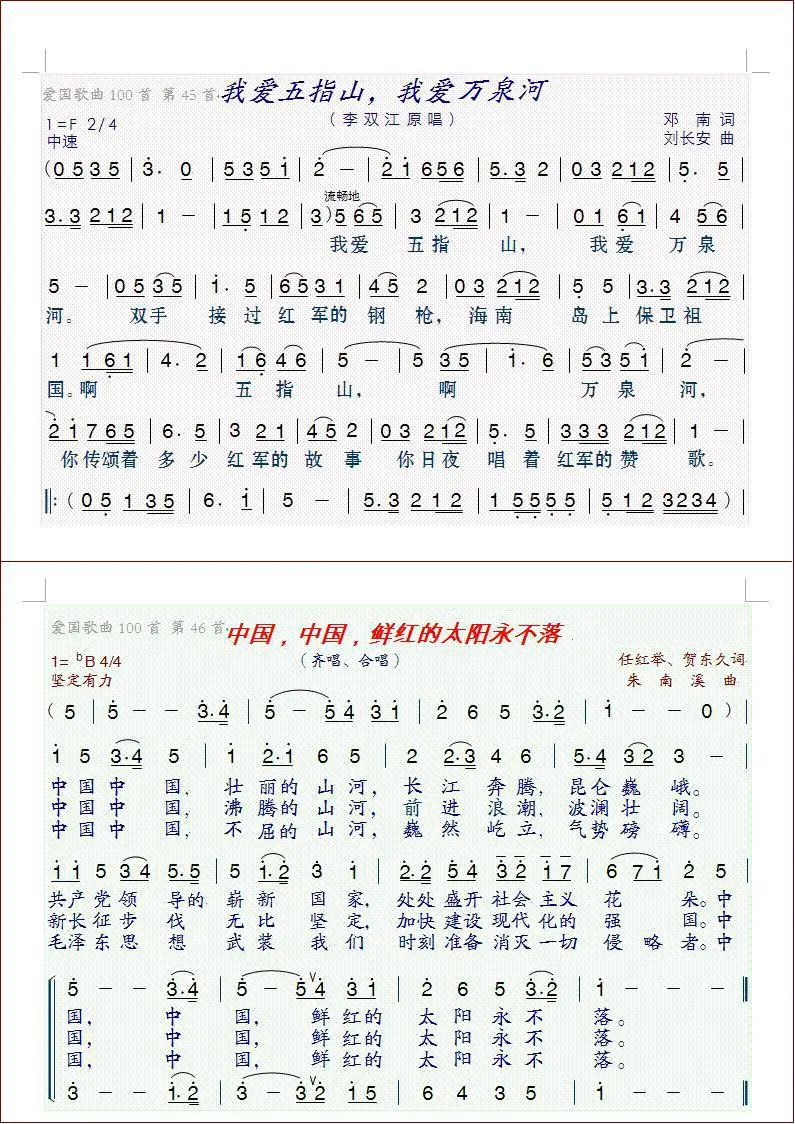 爱国歌曲100首 第45首 我爱五指山，我爱万泉河
1=F 2/4 （李双江原唱） 邓 南 词
中速 刘长安 曲
(0 5 3 5 | 3. 0 | 5 3 5 1 | 2 — | 2 1 6 5 6 | 5. 3 2 | 0 3 2 1 2 | 5. 5 |
流畅地
3. 3 2 1 2 | 1 — | 1 5 1 2 | 3) 5 6 5 | 3 2 1 2 | 1 — | 0 1 6 1 | 4 5 6 |
我爱 五指 山， 我爱 万泉
5 — | 0 5 3 5 | 1. 5 | 6 5 3 1 | 4 5 2 | 0 3 2 1 2 | 5 5 | 3. 3 2 1 2 |
河。 双手 接过红军的钢枪，海南 岛上保卫祖
1 1 6 1 | 4. 2 | 1 6 4 6 | 5 — | 5 3 5 | 1. 6 | 5 3 5 1 | 2 — |
国。啊 五指 山， 啊 万泉 河，
2 1 7 6 5 | 6. 5 | 3 2 1 | 4 5 2 | 0 3 2 1 2 | 5. 5 | 3 3 3 2 1 2 | 1 — |
你传颂着 多少 红军的 故事 你日夜 唱着 红军的赞 歌。
‖: (0 5 1 3 5 | 6. 1 | 5 — | 5. 3 2 1 2 | 1 5 5 5 5 | 5 1 1 2 3 2 3 4 ) |
爱国歌曲100首 第46首 中国，中国，鲜红的太阳永不落
1= ᵇB 4/4 （齐唱、合唱） 任红举、贺东久词
坚定有力 朱 南 溪 曲
( 5 | 5 — — 3. 4 | 5 — 5 4 3 1 | 2 6 5 3. 2 | 1 — — 0 ) |
1 5 3. 4 5 | 1 2. 1 6 5 | 2 2. 3 4 6 | 5. 4 3 2 3 — |
中国中 国，壮丽的山河，长江奔腾，昆仑巍 峨。
中国中 国，沸腾的山河，前进浪潮，波澜壮 阔。
中国中 国，不屈的山河，巍然屹立，气势磅 礴。
1 1 5 3 4 5. 5 | 5 1. 2 3 1 | 2. 2 5 4 3 2 1 7 | 6 7 1 2 5 |
共产党领 导的 崭新国家，处处盛开社会主义花 朵。中
新长征步 伐 无比坚定，加快建设现代化的强 国。中
毛泽东思 想 武装我们 时刻准备消灭一切侵 略者。中
5 — — 3. 4 | 5 — 5 ∨ 4 3 1 | 2 6 5 3. 2 | 1 — — ‖
国， 中 国， 鲜红的 太阳永不 落。
国， 中 国， 鲜红的 太阳永不 落。
国， 中 国， 鲜红的 太阳永不 落。
3 — — 1. 2 | 3 — 3 ∨ 2 1 5 | 6 4 3 5 | 1 — — ‖